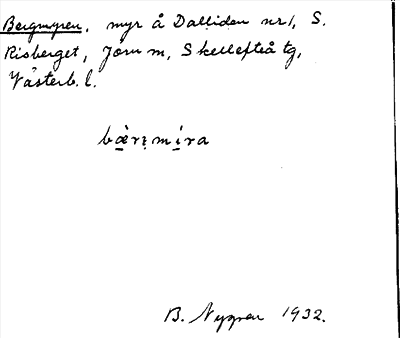 Bergmyren, myr å Dalliden nr 1, S.
Risberget, Jörn sn, Skellefteå tg,
Västerb. l.
bæ̀rı̣míra
B. Nygren 1932.